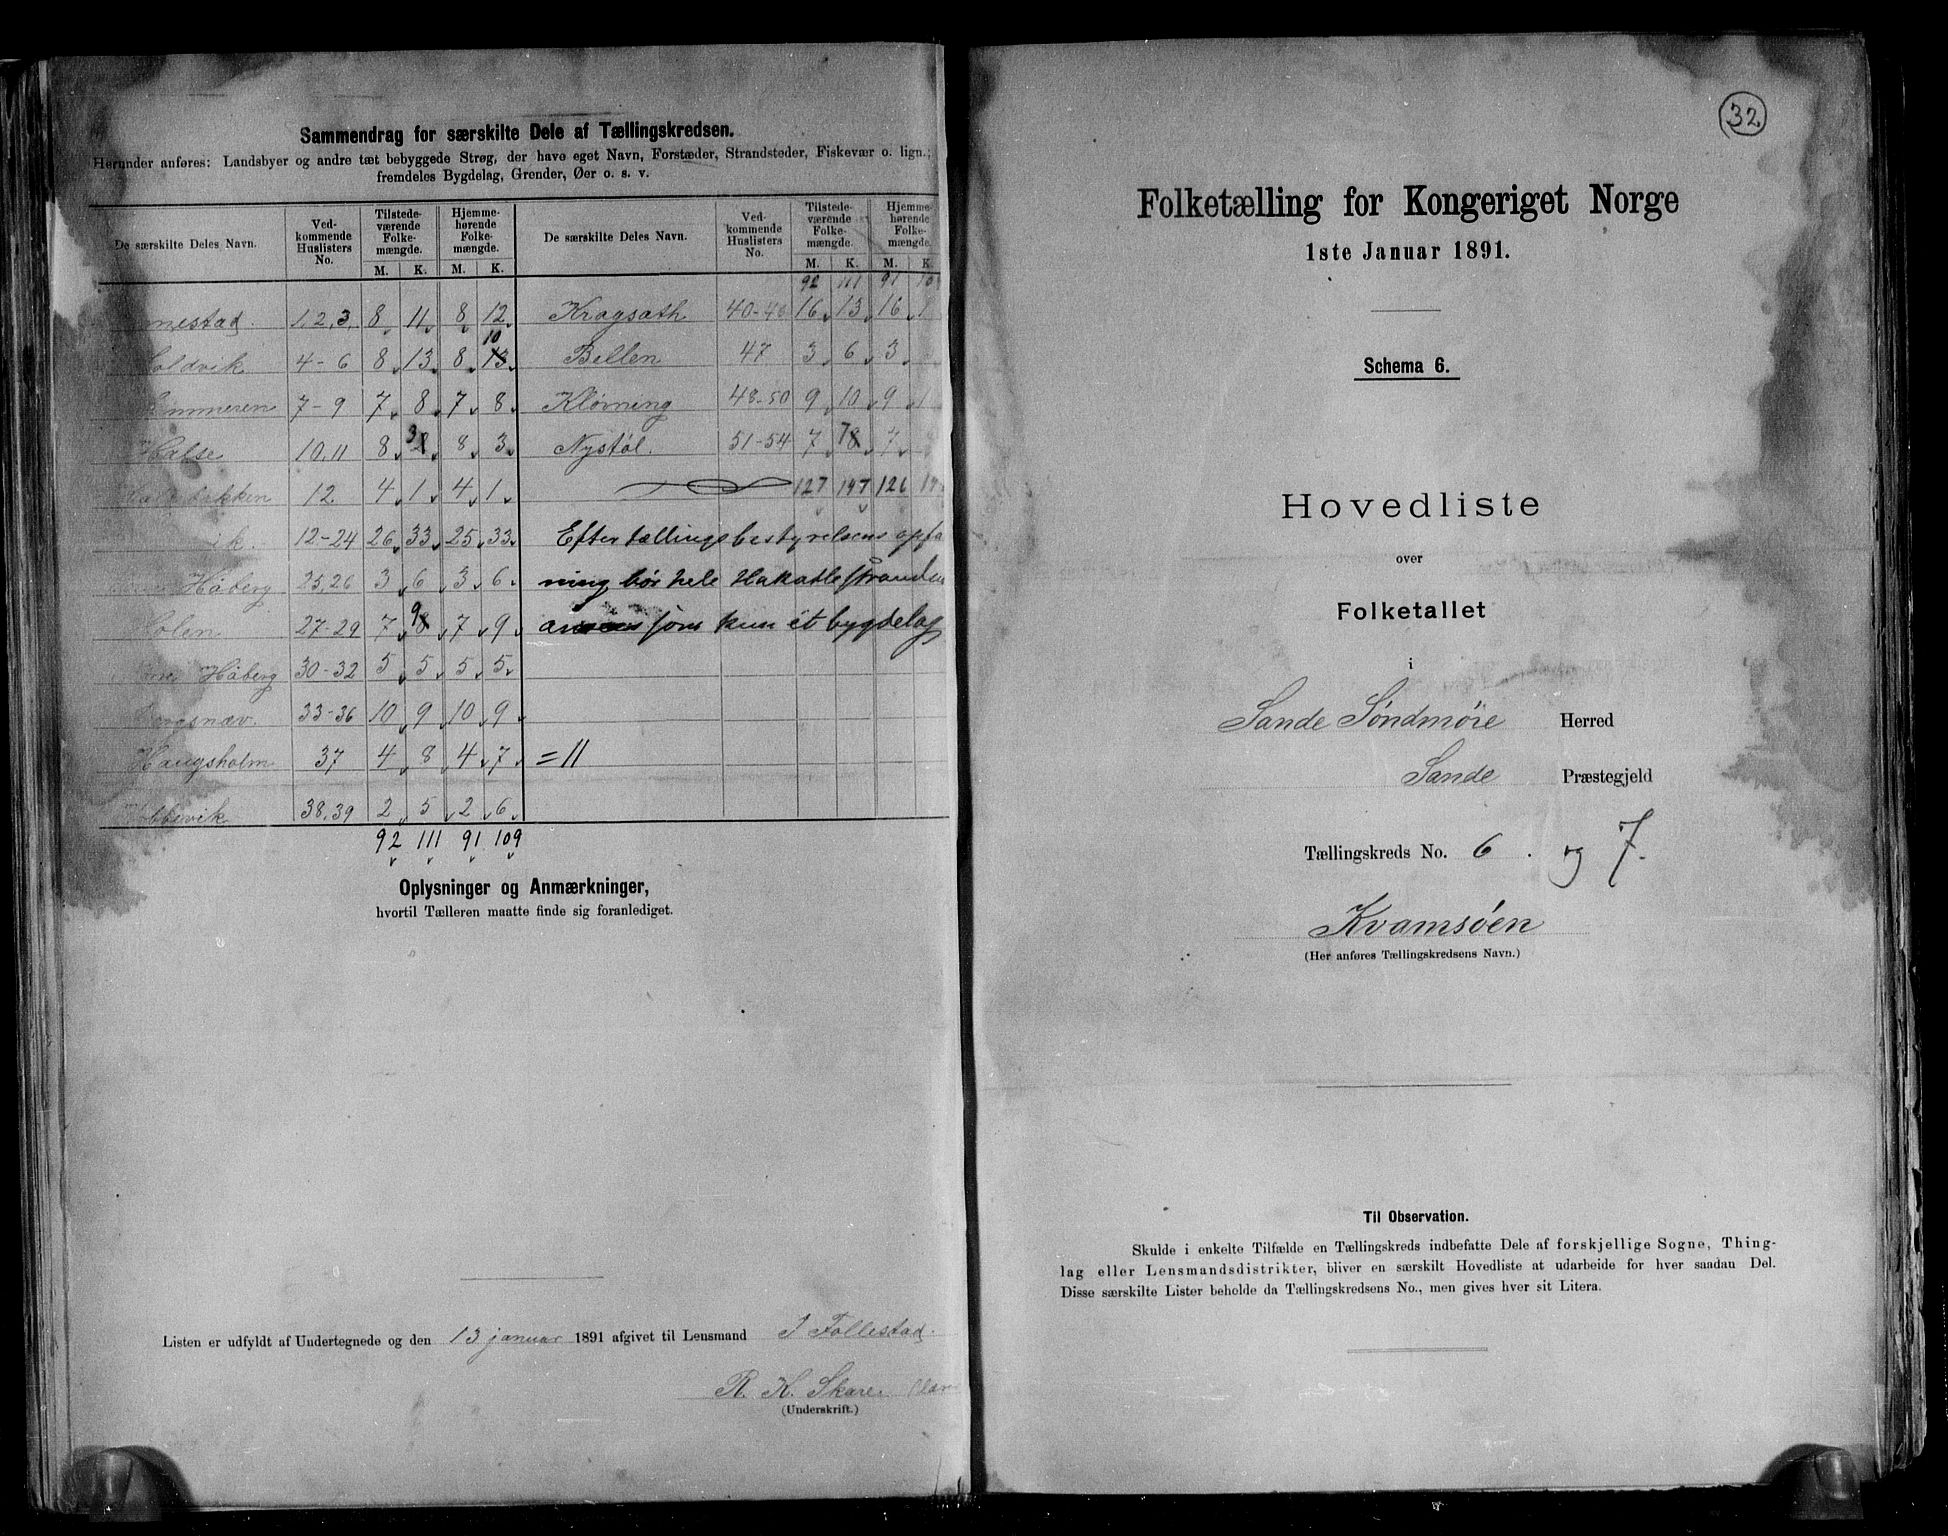 Sammendrag for særskilte Dele af Tællingskredsen.
Herunder anføres: Landsbyer og andre tæt bebyggede Strøg, der have eget Navn, Forstæder, Strandsteder, Fiskevær o. lign.;
fremdeles Bygdelag, Grender, Øer o. s. v.
De særskilte Deles Navn. Ved-kommende Huslisters No. Tilstede-værende Folke-mængde. Hjemme-hørende Folke-mængde. De særskilte Deles Navn. Ved-kommende Huslisters No. Tilstede-værende Folke-mængde. Hjemme-hørende Folke-mængde.
M. K. M. K. M. K. M. K.
92 111 91
1,2,3, 8 11 8 12 Kragsath 40-46 16 13 16
4-6 8 13 8 10 13 Bellen 47 3 6 3
7-9 7 8 7 8 Kløvning 48-50 9 10 9
Halse 10,11 8 3 8 3 Nystøl. 51-54 7 7 8 7
12. 4 1 4 1 127 147 126
12-24 26 33 25 33 Efter tællingsbestyrelsens
Håberg 25,26 3 6 3 6 ning bør hele Hakallestranden
Holen 27-29 7 9 8 7 9 som kun ét bygdelag
Håberg 30-32 5 5 5 5
33-36 10 9 10 9
Haugsholm 37 4 8 4 7 = 11
38,39 2 5 2 6
92 111 91 109
Oplysninger og Anmærkninger,
hvortil Tælleren maatte finde sig foranlediget.
Listen er udfyldt af Undertegnede og den 13 januar 1891 afgivet til Lensmand J Follestad.
R. K. Skare
(Underskrift.)
32
Folketælling for Kongeriget Norge
1ste Januar 1891.
Schema 6.
Hovedliste
over
Folketallet
i
Sande Søndmøre Herred
Sande Præstegjeld
Tællingskreds No. 6. og 7.
Kvamsøen
(Her anføres Tællingskredsens Navn.)
Til Observation.
Skulde i enkelte Tilfælde en Tællingskreds indbefatte Dele af forskjellige Sogne, Thing-
lag eller Lensmandsdistrikter, bliver en særskilt Hovedliste at udarbeide for hver saadan Del.
Disse særskilte Lister beholde da Tællingskredsens No., men gives hver sit Litera.